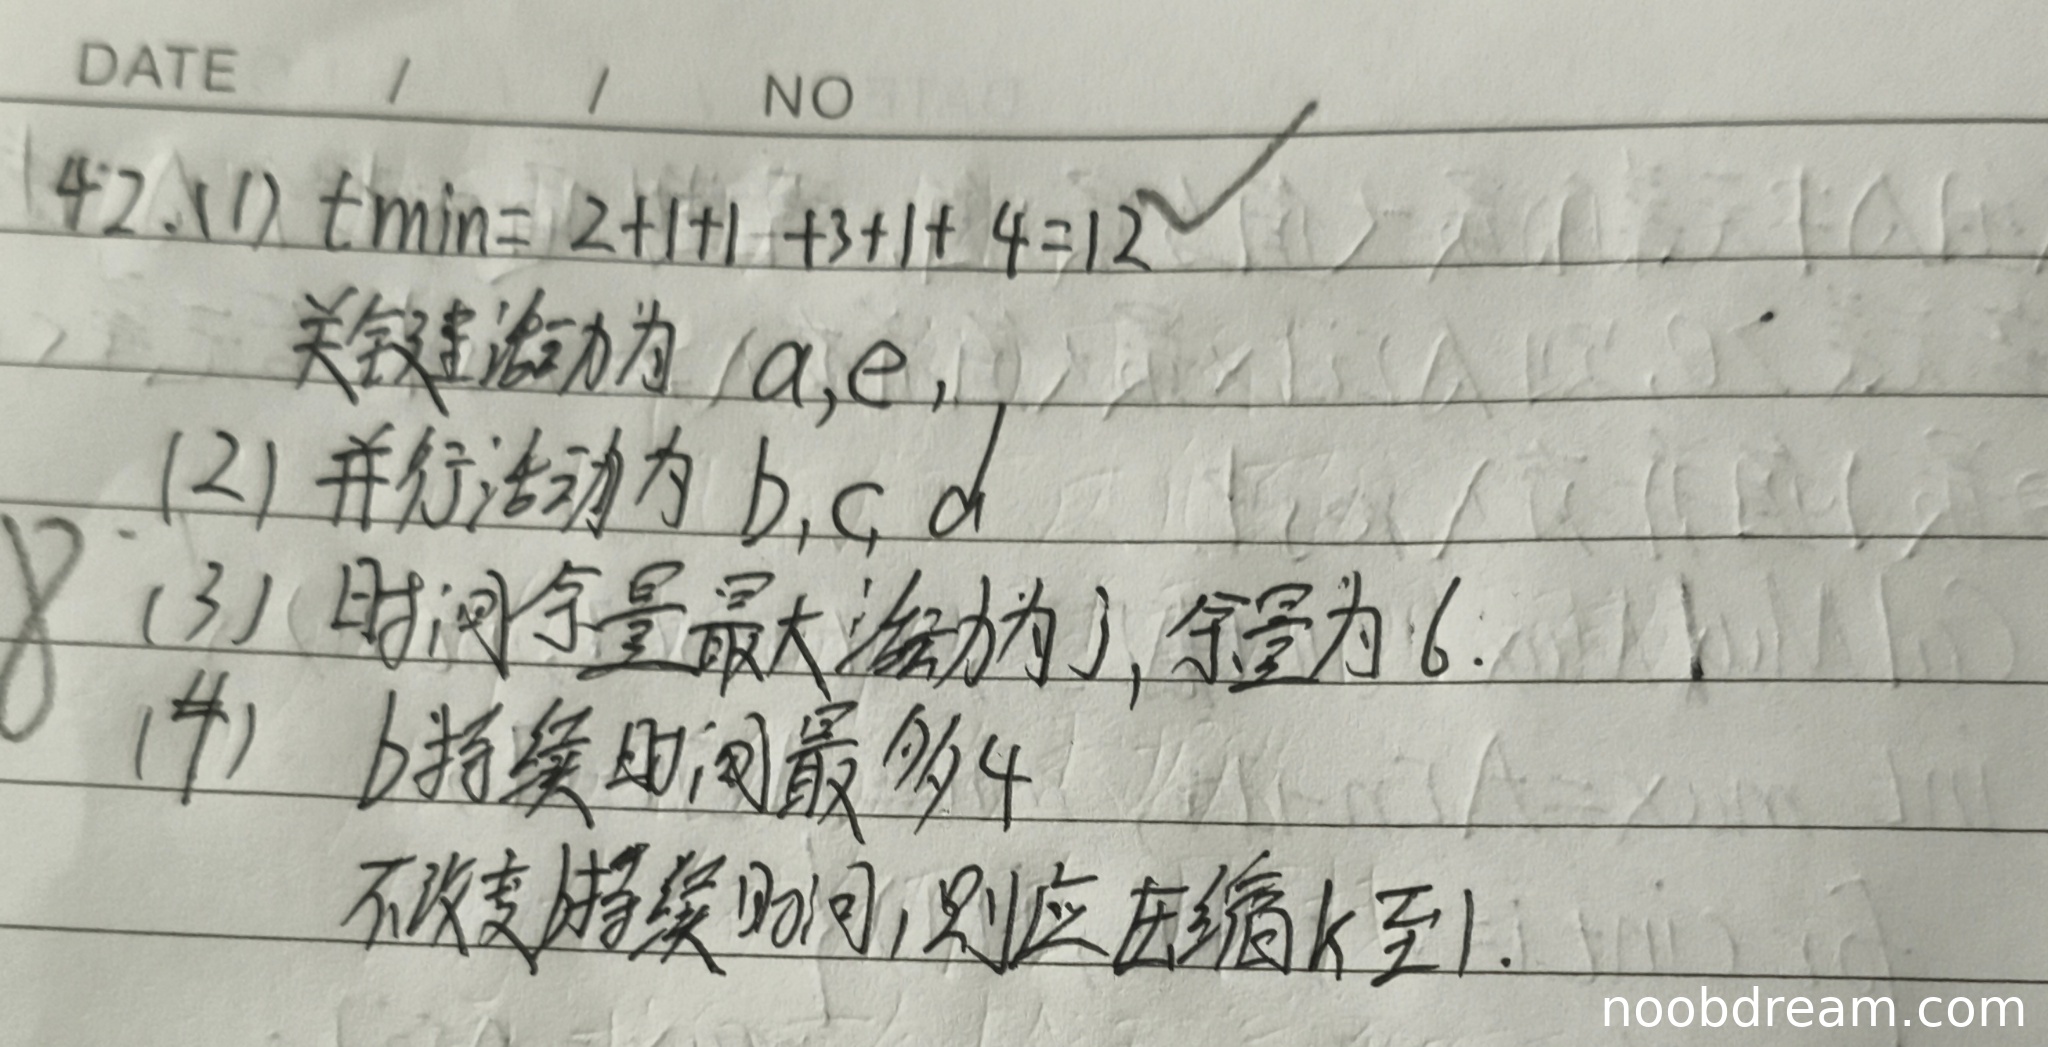 DATE / / NO
42.(1) tmin= 2+1+1+3+1+4=12
关键活动为 a,e,
(2) 并行活动为 b,c,d
8
(3) 时间余量最大活动为j,余量为6.
(4) b持续时间最多4
不改变b持续时间,则应压缩k至1.
noobdream.com